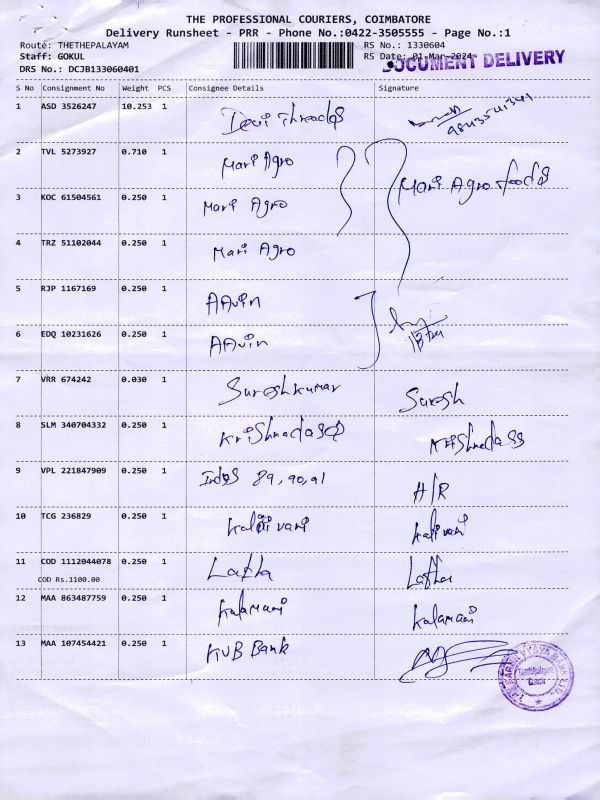 THE PROFESSIONAL COURIERS, COIMBATORE
Delivery Runsheet - PRR - Phone No.:0422-3505555 - Page No.:1
Route: THETHEPALAYAM RS No.: 1330604
Staff: GOKUL RS Date: 01-Mar-2024
DOCUMENT DELIVERY
DRS No.: DCJB133060401
S No Consignment No Weight PCS Consignee Details Signature
1 ASD 3526247 10.253 1 Devi Threads 9843541341
2 TVL 5273927 0.710 1 Mari Agro Mari Agro foods
3 KOC 61504561 0.250 1 Mari Agro
4 TRZ 51102044 0.250 1 Mari Agro
5 RJP 1167169 0.250 1 AAvin
6 EDQ 10231626 0.250 1 AAvin
7 VRR 674242 0.030 1 Sureshkumar Suresh
8 SLM 340704332 0.250 1 Krishnadass Krishnadass
9 VPL 221847909 0.250 1 Indus 89,90,91 H/R
10 TCG 236829 0.250 1 Kalivani Kalivani
11 COD 1112044078 0.250 1 Latha Latha
COD Rs.1100.00
12 MAA 863487759 0.250 1 Kalamani Kalamani
13 MAA 107454421 0.250 1 KVB Bank